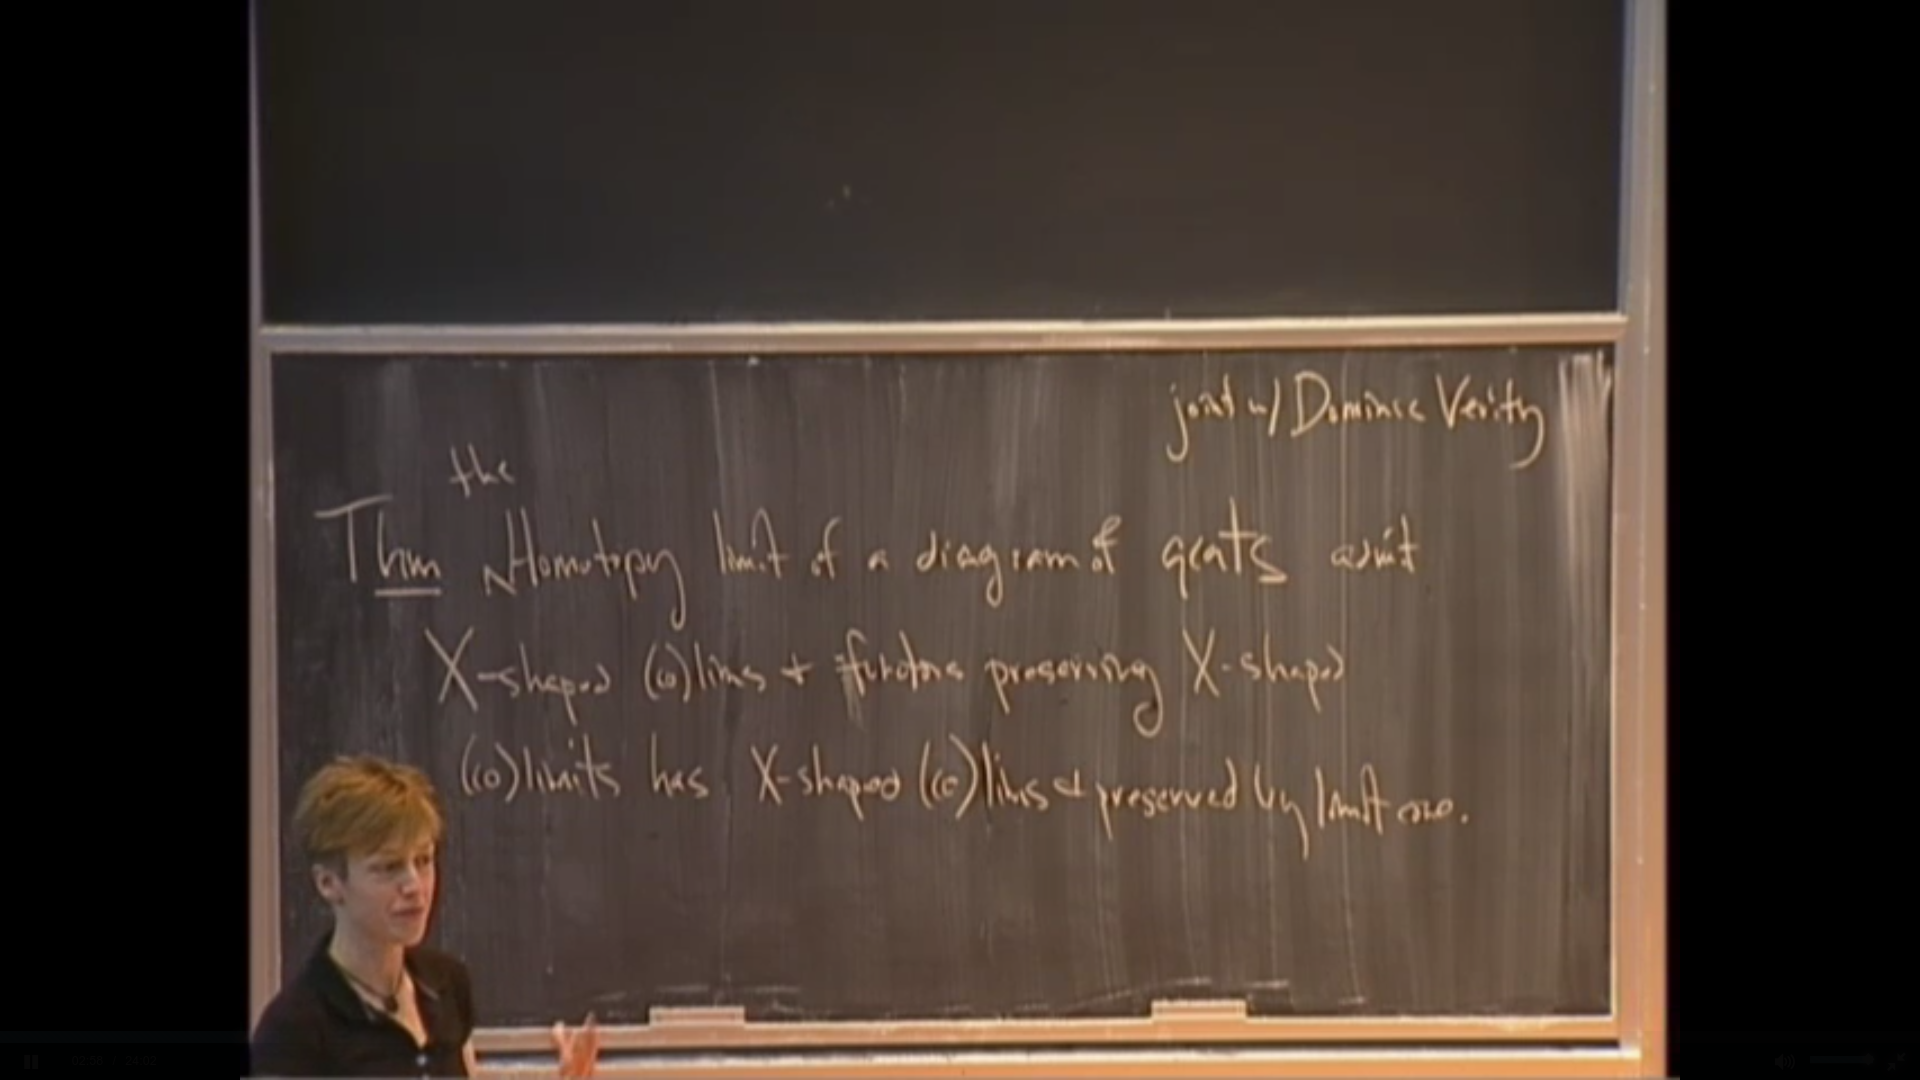 joint w/ Dominic Verity
the
Thm Homotopy limit of a diagram of qcats admit
X-shaped (co)lims + functors preserving X-shaped
(co)limits has X-shaped (co)lims & preserved by limit cone.